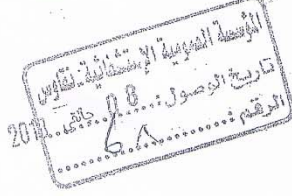 المؤسسة العمومية الإستشفائية. نقاوس
تاريخ الوصول: 08 جانفي 20
الرقم: